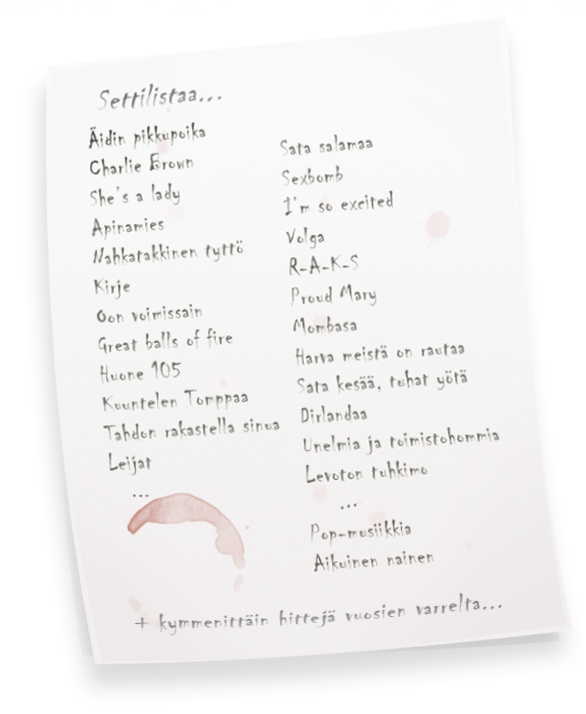 Settilistaa...
Äidin pikkupoika
Charlie Brown
She's a lady
Apinamies
Nahkatakkinen tyttö
Kirje
Oon voimissain
Great balls of fire
Huone 105
Kuuntelen Tomppaa
Tahdon rakastella sinua
Leijat
...
Sata salamaa
Sexbomb
I'm so excited
Volga
R-A-K-S
Proud Mary
Mombasa
Harva meistä on rautaa
Sata kesää, tuhat yötä
Dirlandaa
Unelmia ja toimistohommia
Levoton tuhkimo
...
Pop-musiikkia
Aikuinen nainen
+ kymmenittäin hittejä vuosien varrelta...